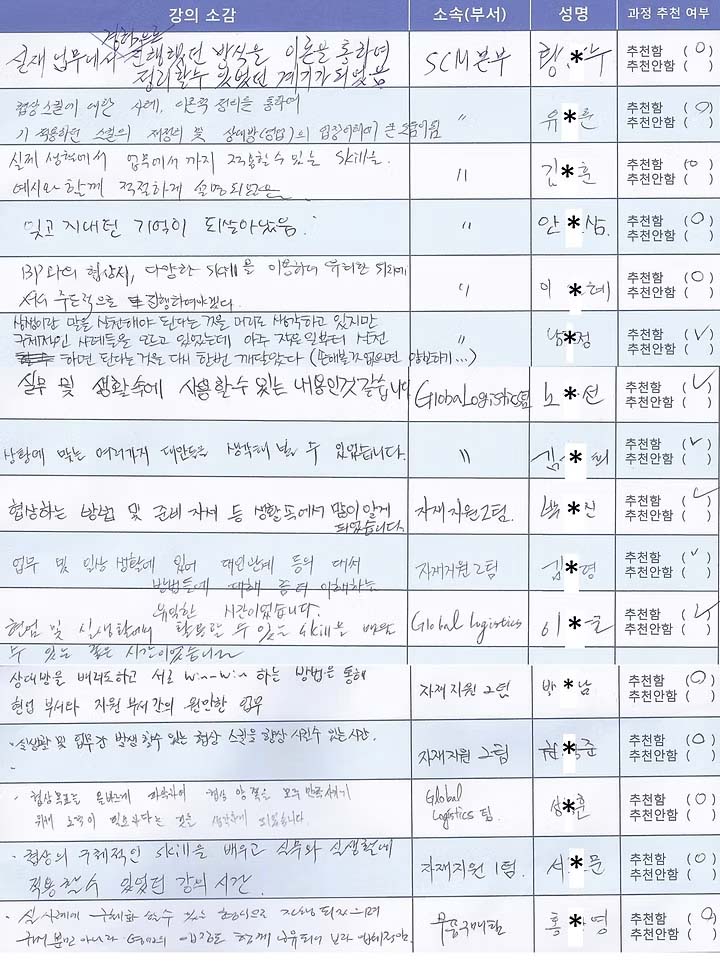 강의 소감 소속(부서) 성명 과정 추천 여부
실제 업무에서 경험으로 진행했던 방식을 이론을 통하여
정리할수 있었던 계기가 되었음
SCM본부
추천함 (○)
추천안함 ( )
협상스킬에 대한 사례, 이론적 정리를 통하여
상대방(영업)의 입장이해에 큰 도움이됨
〃 유*훈
추천함 (○)
추천안함 ( )
실제 생활에서 업무에서 까지 적용할수 있는 Skill을
예시와 함께 적절하게 설명되었음
〃 김*훈
추천함 (○)
추천안함 ( )
잊고 지내던 기억이 되살아났음.
〃 안*삼
추천함 (○)
추천안함 ( )
BP와의 협상시, 다양한 skill을 이용하여 유리한 위치에
서서 주도적으로 진행하여야겠다.
〃 이*혜
추천함 (○)
추천안함 ( )
상생이란 말을 실천해야 된다는 것을 머리로 생각하고 있지만
구체적인 사례들을 모르고 있었는데 아주 작은일부터 실천
하면 된다는것을 다시 한번 깨달았다
남*정
추천함 (✓)
추천안함 ( )
실무 및 생활속에 사용할수 있는 내용인것 같습니다
Global Logistics팀 노*선
추천함 (✓)
추천안함 ( )
상황에 맞는 여러가지 대안들을 생각해 볼 수 있었습니다.
〃 김*희
추천함 (✓)
추천안함 ( )
협상하는 방법 및 준비 자세 등 생활속에서 많이 알게
되었습니다.
자재지원2팀. 박*진
추천함 (✓)
추천안함 ( )
업무 및 일상 생활에 있어 대인관계 등의 대서
방법들에 대해 좀 더 이해하는
유익한 시간이었습니다.
자재지원2팀 김*영
추천함 (✓)
추천안함 ( )
현업 및 실생활에서 활용할 수 있는 skill을 배울
수 있는 좋은 시간이었습니다
Global Logistics 이*
추천함 (✓)
추천안함 ( )
상대방을 배려도하고 서로 Win-Win 하는 방법은 통해
현업 부서타 지원 부서간의 원만한 업무
자재지원 2팀 박*남
추천함 (○)
추천안함 ( )
· 실생활 및 업무간 발생 할수 있는 협상 스킬을 향상 시킬수 있는시간.
자재지원 2팀 *준
추천함 (○)
추천안함 ( )
· 협상목표를 올바르게 파악하여 협상 양쪽을 모두 만족시키기
위해 노력이 필요하다는 것을 생각하게 되었습니다
Global
Logistics 팀. 성*훈
추천함 (○)
추천안함 ( )
· 협상의 구체적인 skill을 배우고 실무와 실생활에
적용할수 있었던 강의 시간.
자재지원 1팀. 서*문
추천함 (○)
추천안함 ( )
· 실사례에 구체화 할수 있는 형식으로 진행되었으며
뿐만 아니라 입장도 함께 공유되어
부품구매팀 홍*영
추천함 (○)
추천안함 ( )